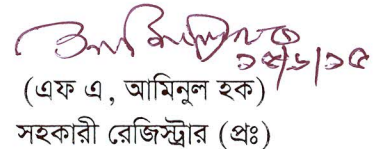 ১৫/৬/১৫
(এফ এ, আমিনুল হক)
সহকারী রেজিস্ট্রার (প্রঃ)